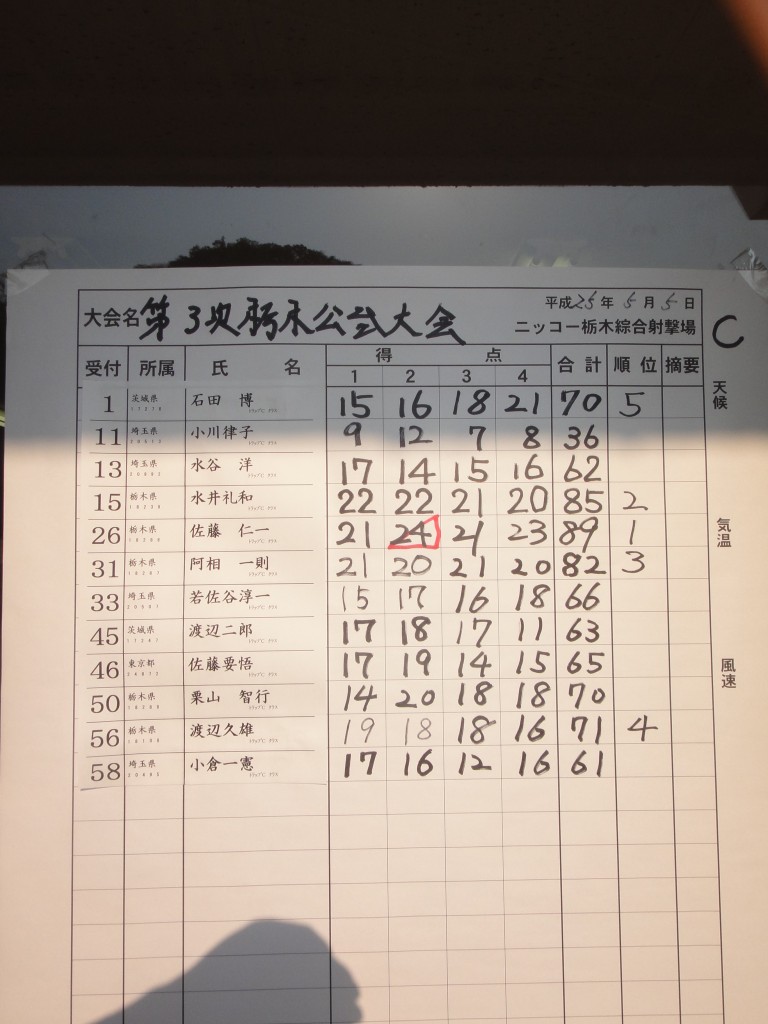 大会名 第3次栃木公式大会
平成25年5月5日
ニッコー栃木綜合射撃場
C
受付 所属 氏 名 得 点 合計 順位 摘要
1 2 3 4
天候
1 茨城県 石田 博 15 16 18 21 70 5
11 埼玉県 小川律子 9 12 7 8 36
13 埼玉県 水谷 洋 17 14 15 16 62
15 栃木県 水井礼和 22 22 21 20 85 2
26 栃木県 佐藤 仁一 21 24 21 23 89 1
気温
31 栃木県 阿相 一則 21 20 21 20 82 3
33 埼玉県 若佐谷淳一 15 17 16 18 66
45 茨城県 渡辺二郎 17 18 17 11 63
46 東京都 佐藤要悟 17 19 14 15 65
風速
50 栃木県 栗山 智行 14 20 18 18 70
56 栃木県 渡辺久雄 19 18 18 16 71 4
58 埼玉県 小倉一憲 17 16 12 16 61